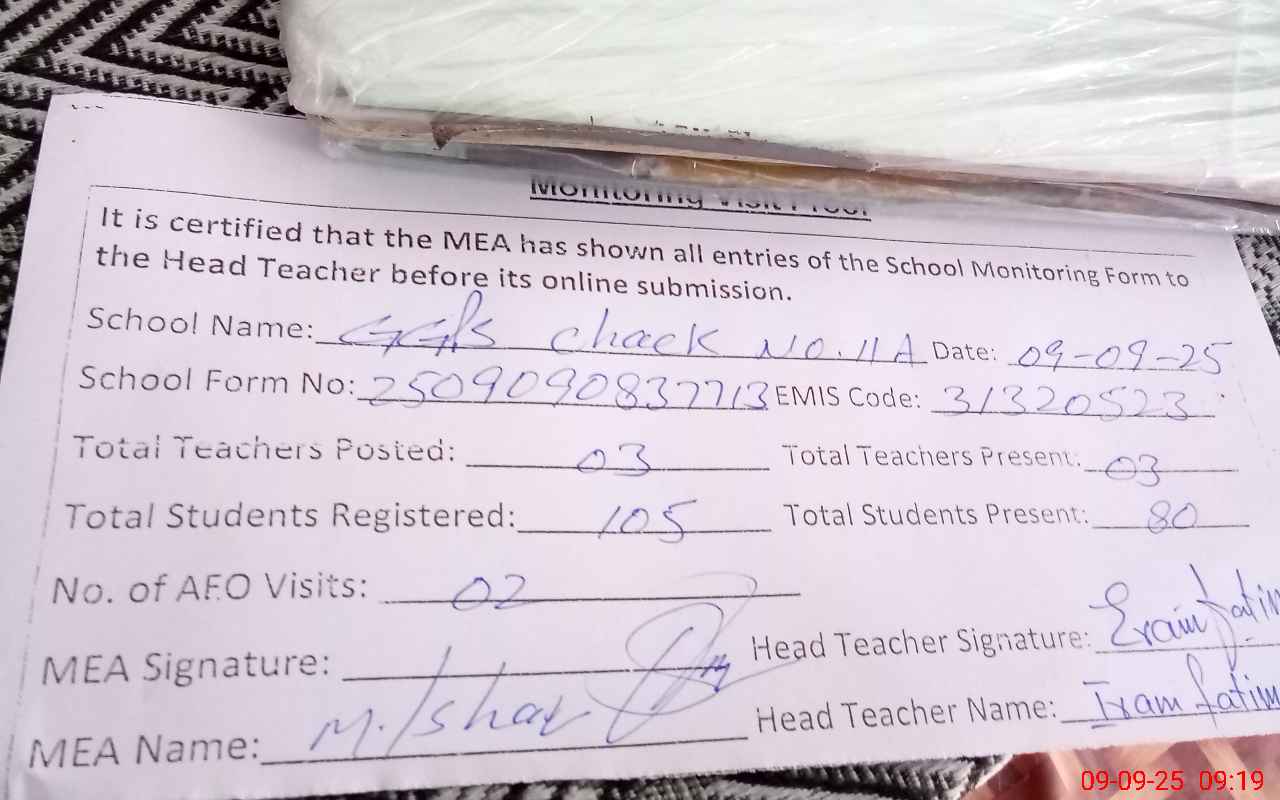 Monitoring Visit Proof
It is certified that the MEA has shown all entries of the School Monitoring Form to
the Head Teacher before its online submission.
School Name: GGPS Chack No. 11A Date: 09-09-25
School Form No: 2509090837713 EMIS Code: 31320523
Total Teachers Posted: 03 Total Teachers Present: 03
Total Students Registered: 105 Total Students Present: 80
No. of AEO Visits: 02
MEA Signature: Head Teacher Signature: Eram fatim
MEA Name: M. Ishaq Head Teacher Name: Iram fatim
09-09-25 09:19